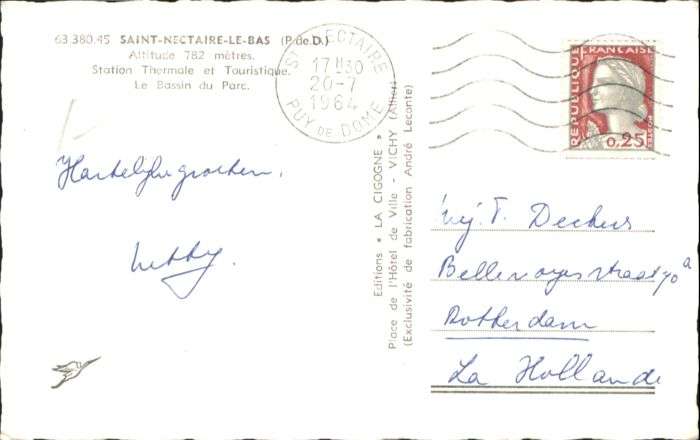 63.380.45 SAINT-NECTAIRE-LE-BAS (P.de.D.)
Altitude 782 mètres.
Station Thermale et Touristique.
Le Bassin du Parc.
ST NECTAIRE
17H30
20-7
1964
PUY DE DOME
REPUBLIQUE FRANÇAISE
0,25
Hartelijke groeten,
Editions "LA CIGOGNE"
Place de l'Hôtel de Ville - VICHY (Allier)
(Exclusivité de fabrication André Leconte)
Mej. T. Dekkers
Rotterdam
La Hollande